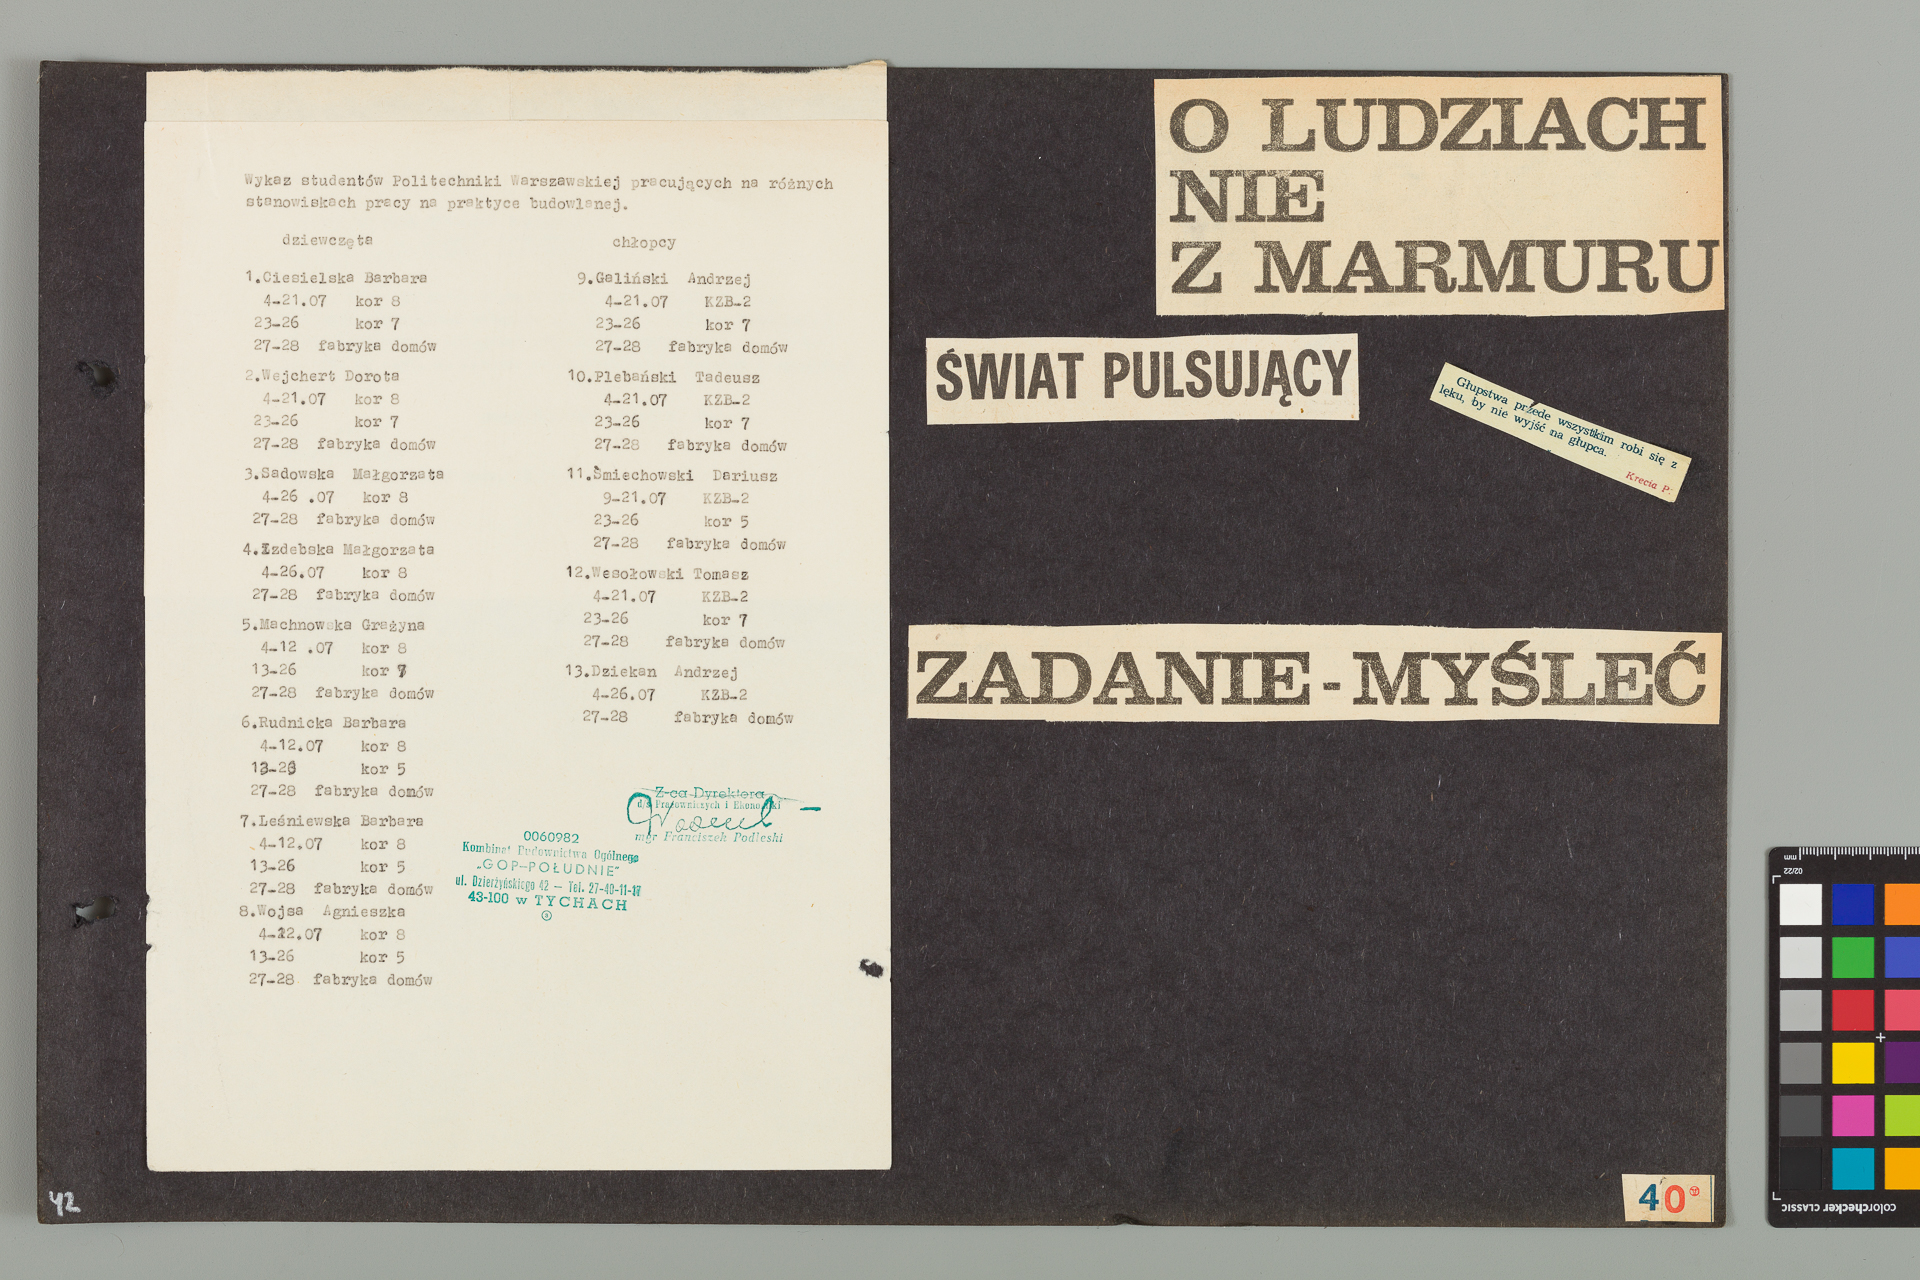 Wykaz studentów Politechniki Warszawskiej pracujących na różnych
stanowiskach pracy na praktyce budowlanej.
dziewczęta
1.Ciesielska Barbara
4-21.07 kor 8
23-26 kor 7
27-28 fabryka domów
2.Wejchert Dorota
4-21.07 kor 8
23-26 kor 7
27-28 fabryka domów
3.Sadowska Małgorzata
4-26 .07 kor 8
27-28 fabryka domów
4.Izdebska Małgorzata
4-26.07 kor 8
27-28 fabryka domów
5.Machnowska Grażyna
4-12 .07 kor 8
13-26 kor 7
27-28 fabryka domów
6.Rudnicka Barbara
4-12.07 kor 8
13-26 kor 5
27-28 fabryka domów
7.Leśniewska Barbara
4-12.07 kor 8
13-26 kor 5
27-28 fabryka domów
8.Wojsa Agnieszka
4-12.07 kor 8
13-26 kor 5
27-28 fabryka domów
chłopcy
9.Galiński Andrzej
4-21.07 KZB-2
23-26 kor 7
27-28 fabryka domów
10.Plebański Tadeusz
4-21.07 KZB-2
23-26 kor 7
27-28 fabryka domów
11.Śmiechowski Dariusz
9-21.07 KZB-2
23-26 kor 5
27-28 fabryka domów
12.Wesołowski Tomasz
4-21.07 KZB-2
23-26 kor 7
27-28 fabryka domów
13.Dziekan Andrzej
4-26.07 KZB-2
27-28 fabryka domów
Z-ca Dyrektora
d/s Pracowniczych i Ekonomiki
mgr Franciszek Podleski
0060982
Kombinat Budownictwa Ogólnego
„GOP-POŁUDNIE"
ul. Dzierżyńskiego 42 — Tel. 27-40-11-17
43-100 w TYCHACH
O LUDZIACH
NIE
Z MARMURU
ŚWIAT PULSUJĄCY
Głupstwa przede wszystkim robi się z
lęku, by nie wyjść na głupca.
Krecia P.
ZADANIE - MYŚLEĆ
42
40
mm
02/22
colorchecker CLASSIC